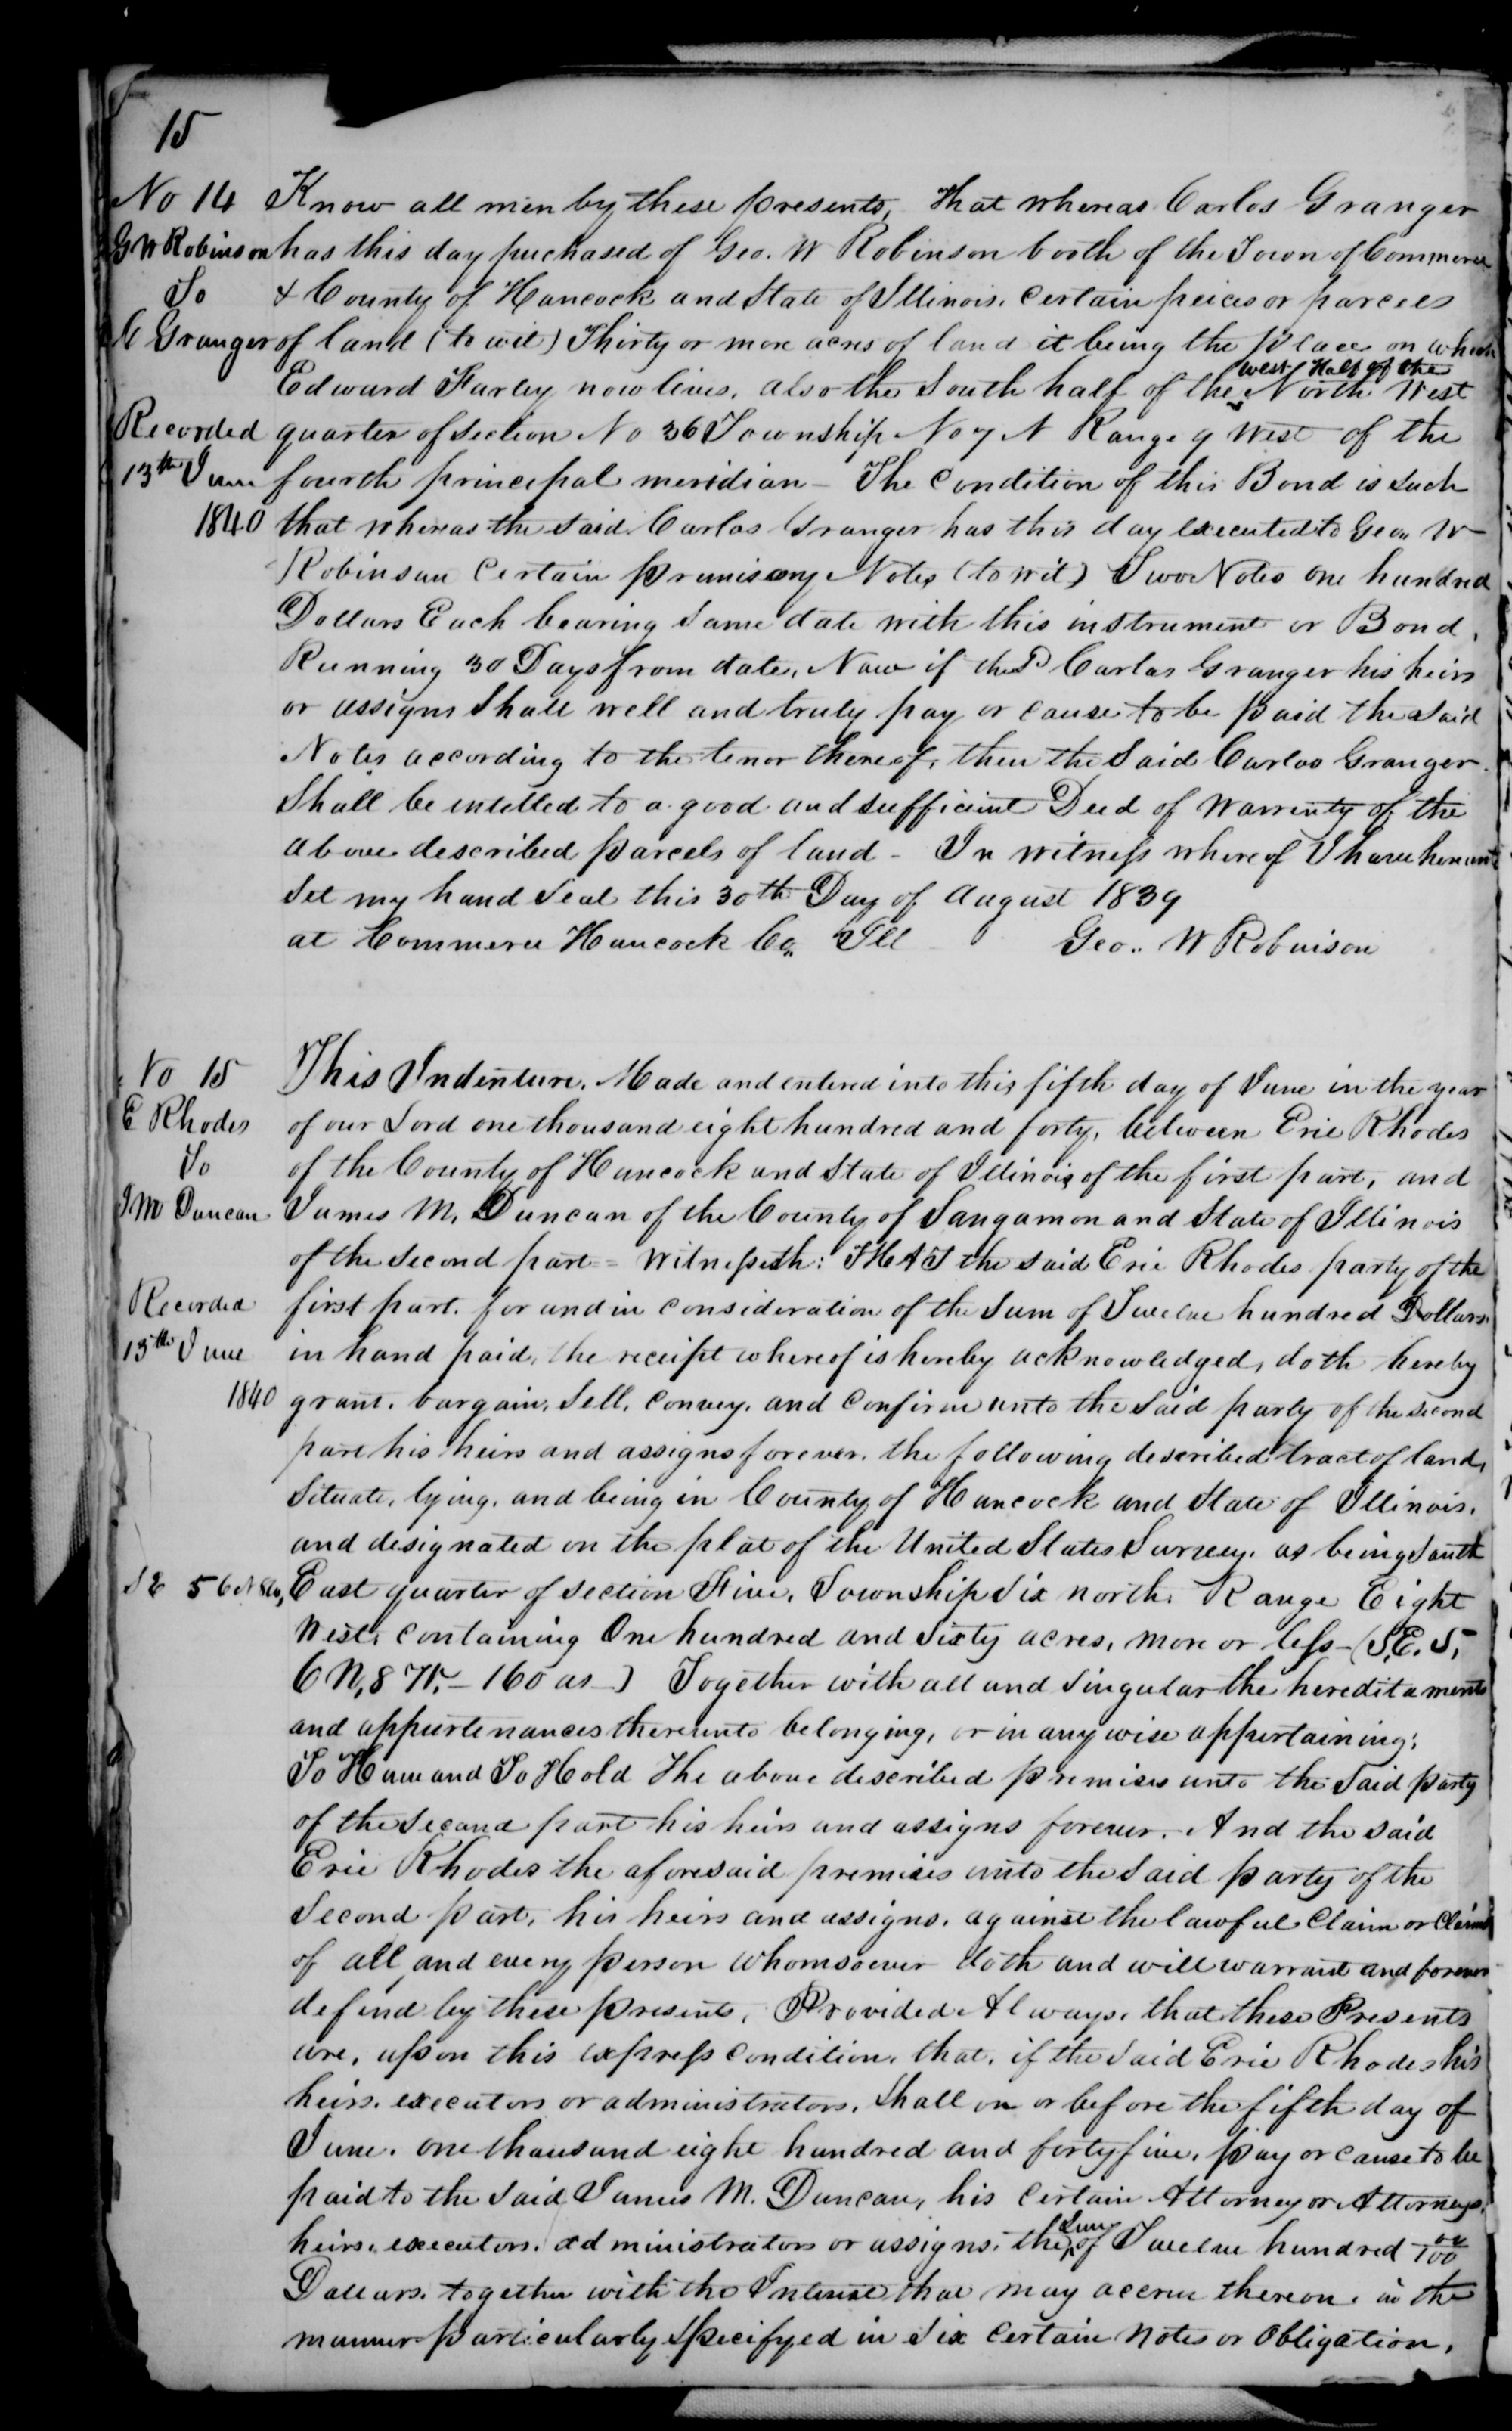 15
No 14 Know all men by these presents, That whereas Carlos Granger
G W Robinson has this day puchased of Geo. W Robinson booth of the Town of Commerce
To & County of Hancock and State of Illinois. Certain peices or parcees
C Granger of land (to wit) Thirty or more acres of land it being the place on which
west Half of the
Edward Farley now lives, also the South half of the North West
Recorded quarter of Section No 36 Township No 7 N Range 9 West of the
13th June fourth principal meridian - The Condition of this Bond is such
1840 that whereas the said Carlos Granger has this day executed to Geo. W
Robinson Certain promisory Notes (to wit) Two Notes one hundred
Dollars Each bearing same date with this instrument or Bond,
Running 30 Days from date, Now if the sd Carlos Granger his heirs
or assigns shall well and truly pay or cause to be paid the said
Notes according to the tenor thereof, then the Said Carlos Granger
Shall be intitled to a good and sufficient Deed of Warrenty of the
above described parcels of land - In witness whereof I have hereunto
Set my hand Seal this 30th Day of August 1839
at Commerce Hancock Co. Ill Geo. W Robinson
No 15 This Indenture, Made and entered into this fifth day of June in the year
E Rhodes of our Lord one thousand eight hundred and forty, between Erie Rhodes
To of the County of Hancock and State of Illinois of the first part, and
J M Duncan James M. Duncan of the County of Sangamon and State of Illinois
of the second part = Witnesseth: THAT the said Erie Rhodes party of the
Recorded first part. for and in consideration of the Sum of Twelve hundred Dollars
13th June in hand paid, the receipt whereof is hereby acknowledged, doth hereby
1840 grant, bargain, Sell, Convey, and Confirm unto the Said party of the second
part his heirs and assigns forever, the following described tract of land,
Situate, lying, and being in County of Hancock and State of Illinois,
and designated on the plat of the United States Survey, as being South
S E 5 6 N 8 W, East quarter of Section Five, Township Six north, Range Eight
West, Containing One hundred and Sixty acres, more or less - (S.E. 5,
6 N, 8 W, - 160 as -) Together with all and Singular the hereditaments
and appurtenances thereunto belonging, or in any wise appertaining;
To Have and To Hold The above described premises unto the Said party
of the second part his heirs and assigns forever. And the said
Erie Rhodes the aforesaid premises unto the Said party of the
Second part, his heirs and assigns, against the lawful Claim or Claims
of all and every person whomsoever doth and will warrant and forever
defend by these presents, Provided Always, that these Presents
are, upon this express condition, that, if the said Erie Rhodes his
heirs, executors or administrators, Shall on or before the fifth day of
June, one thousand eight hundred and forty five, pay or cause to be
paid to the Said James M. Duncan, his Certain Attorney or Attorneys,
heirs, executors, administrators or assigns, the Sum of Twelve hundred 00/100
Dollars, together with the Interest that may accrue thereon, in the
manner particularly Specifyed in Six Certain Notes or Obligation,